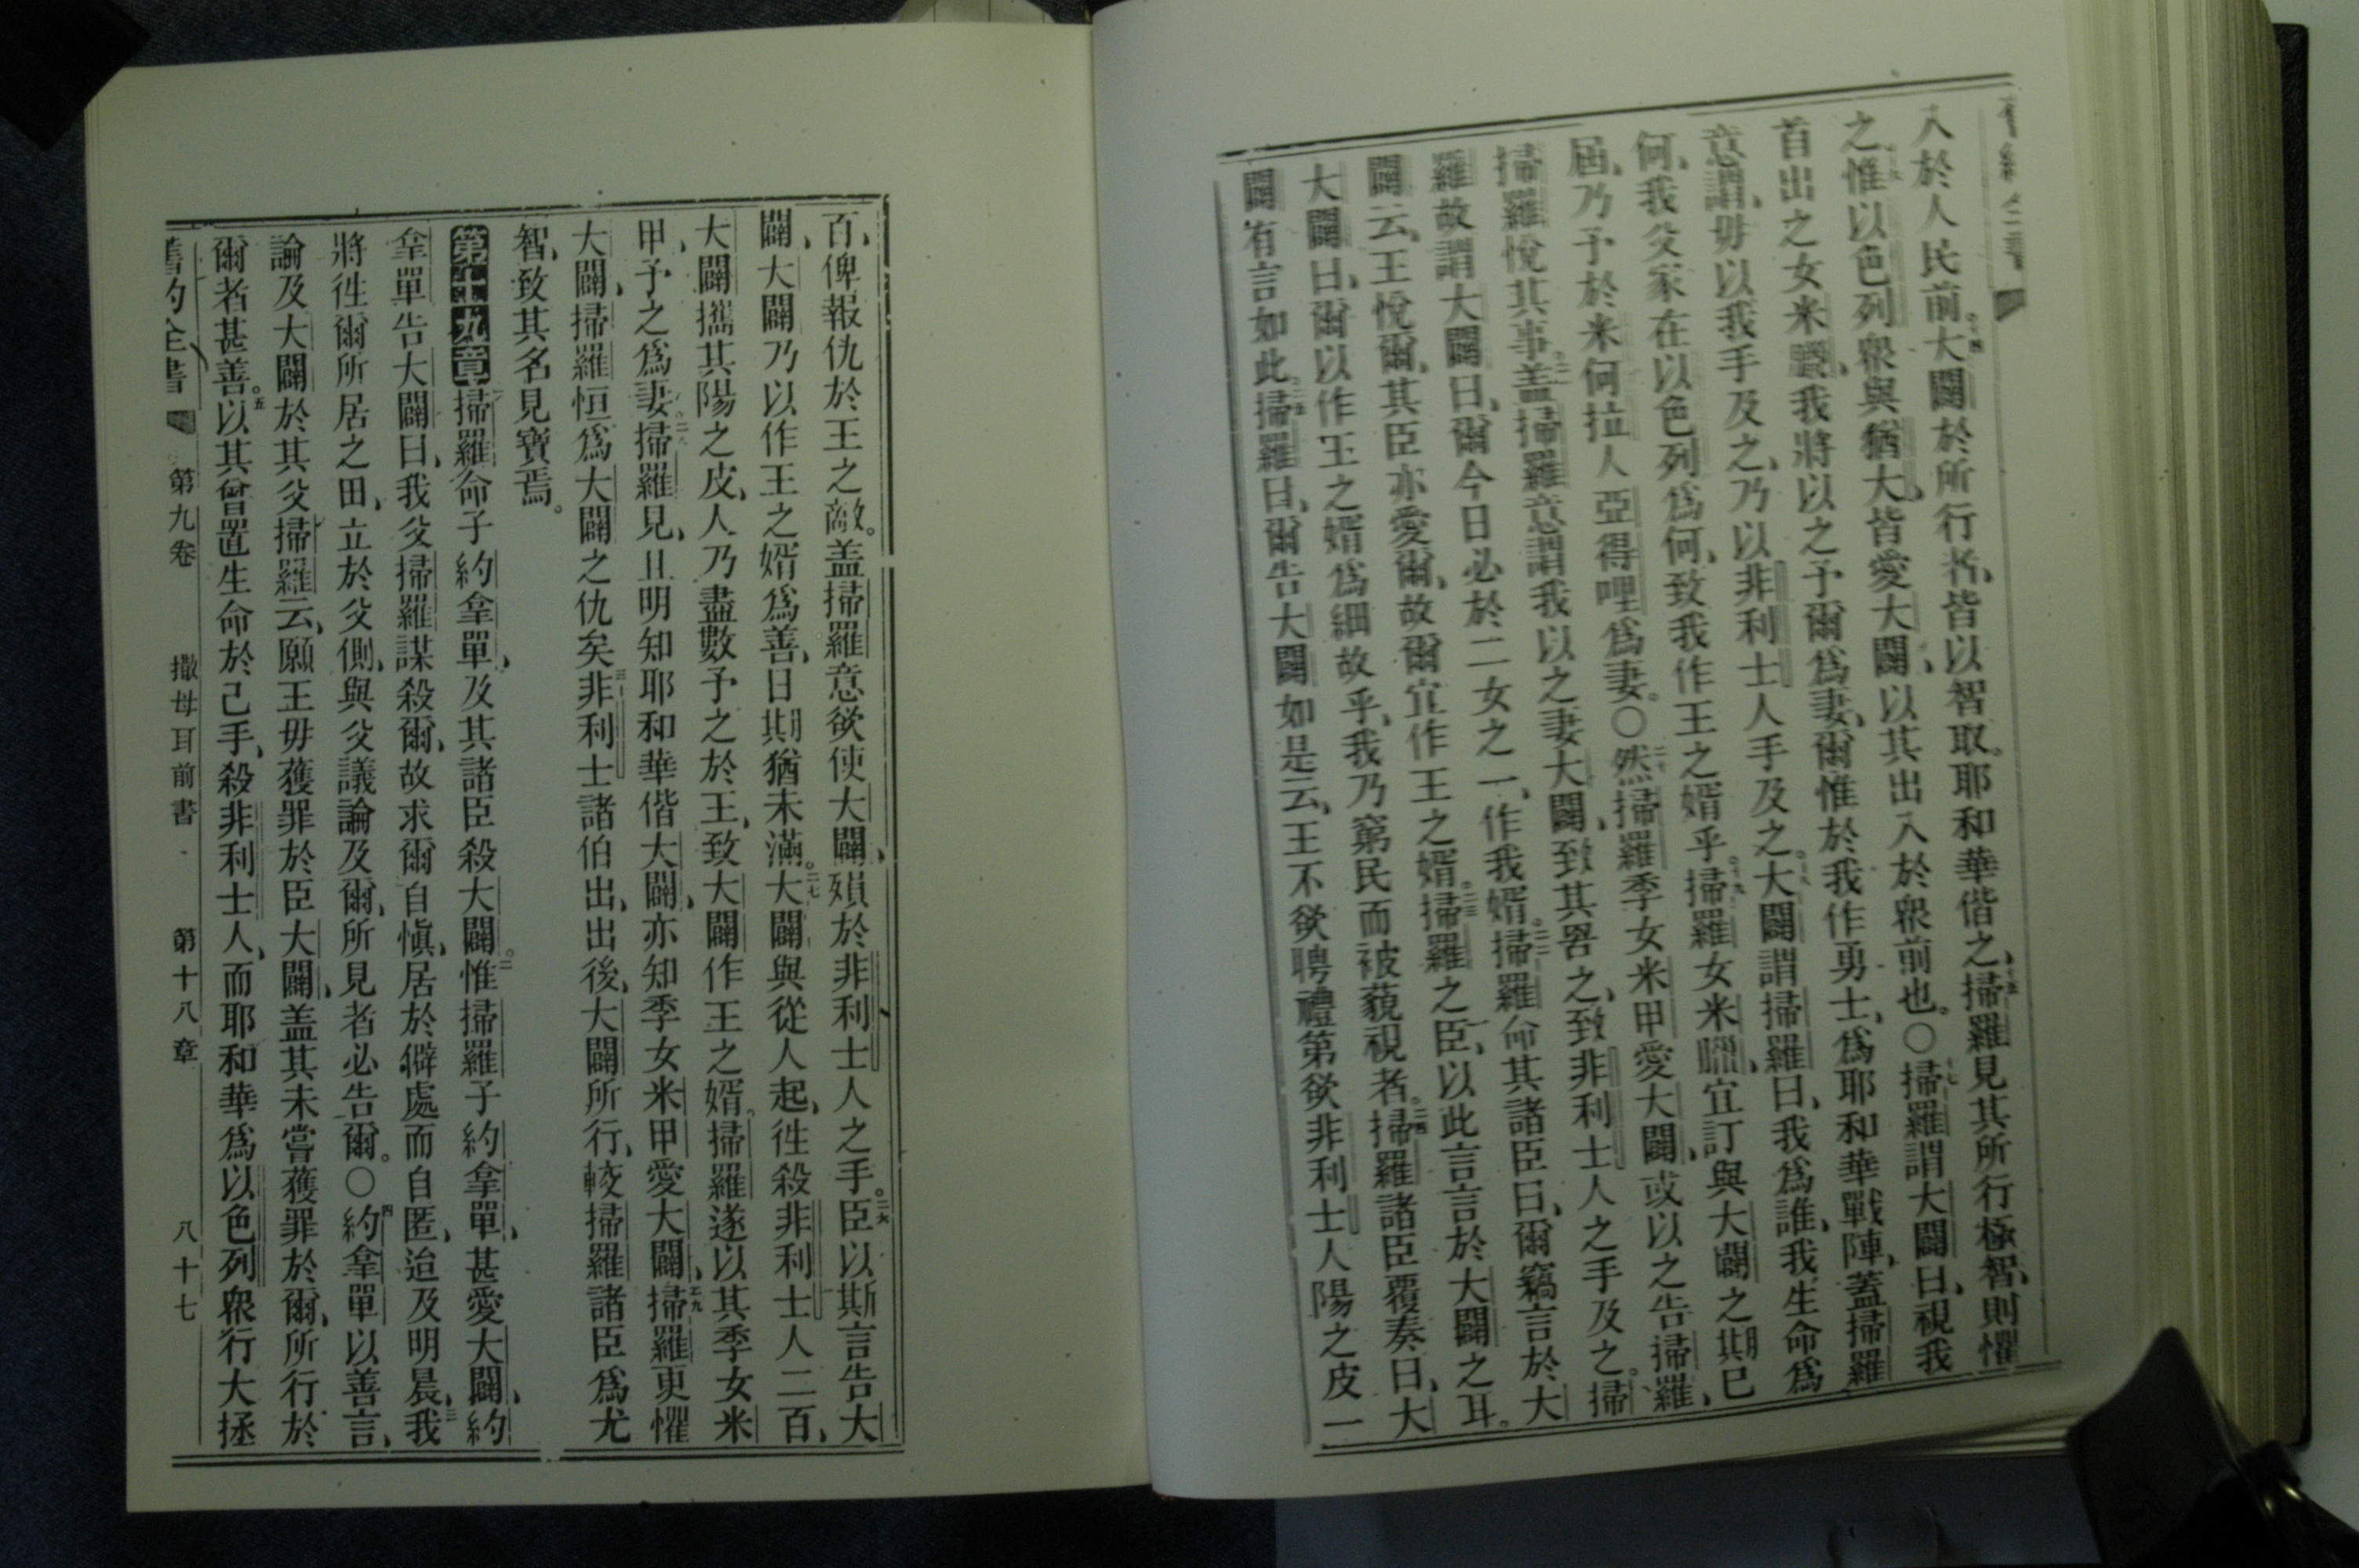 入於人民前。十四大闢於所行者、皆以智取。耶和華偕之、十五掃羅見其所行極智、則懼
之、惟以色列衆與猶大、皆愛大闢、以其出入於衆前也。○十七掃羅謂大闢曰、視我
首出之女米我將以之予爾爲妻、爾惟於我作勇士、爲耶和華戰陣、蓋掃羅
意謂、毋以我手及之、乃以非利士人手及之。大闢謂掃羅曰、我爲誰、我生命爲
何、我父家在以色列爲何、致我作王之婿乎。掃羅女米宜訂與大闢之期已
屆、乃予於米何拉人亞得哩爲妻。○二十然掃羅季女米甲愛大闢、或以之告掃羅、
掃羅悅其事。蓋掃羅意謂我以之妻大闢、致其罟之、致非利士人之手及之。掃
羅故謂大闢曰、爾今日必於二女之一、作我婿。二二掃羅命其諸臣曰、爾竊言於大
闢云、王悅爾、其臣亦愛爾、故爾宜作王之婿。二三掃羅之臣、以此言言於大闢之耳。
大闢曰、爾以作王之婿爲細故乎、我乃窮民而被藐視者。二四掃羅諸臣覆奏曰、大
闢有言如此。掃羅曰、爾告大闢如是云、王不欲聘禮第欲非利士人陽之皮一
百、俾報仇於王之敵。盖掃羅意欲使大闢、殞於非利士人之手。二六臣以斯言告大
闢、大闢乃以作王之婿爲善、日期猶未滿。二七大闢與從人起、徃殺非利士人二百、
大闢攜其陽之皮、人乃盡數予之於王、致大闢作王之婿。掃羅遂以其季女米
甲、予之爲妻。二八掃羅見、且明知耶和華偕大闢、亦知季女米甲愛大闢、二九掃羅更懼
大闢、掃羅恒爲大闢之仇矣三十非利士諸伯出、出後、大闢所行、較掃羅諸臣爲尤
智、致其名見寶焉。
第十九章一掃羅命子約拿單、及其諸臣殺大闢。二惟掃羅子約拿單、甚愛大闢、約
拿單告大闢曰、我父掃羅謀殺爾、故求爾自愼、居於僻處而自匿、迨及明晨、三我
將徃爾所居之田、立於父側、與父議論及爾、所見者必告爾。○四約拿單以善言、
論及大闢於其父掃羅云、願王毋獲罪於臣大闢、盖其未嘗獲罪於爾、所行於
爾者甚善。五以其曾置生命於己手、殺非利士人、而耶和華爲以色列衆行大拯
舊約全書 第九卷 撒母耳前書 第十八章 八十七